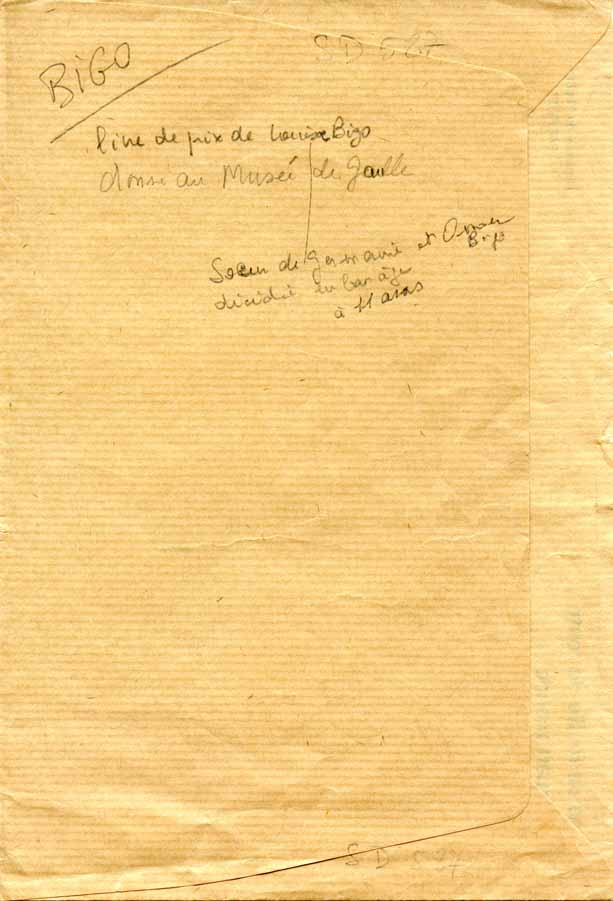 SD 527
BIGO
livre de prix de Louise Bigo
donné au Musée de Gaulle
Soeur de Germaine et Omer
Bigo
décédée en bas âge
à 11 ans
SD 527